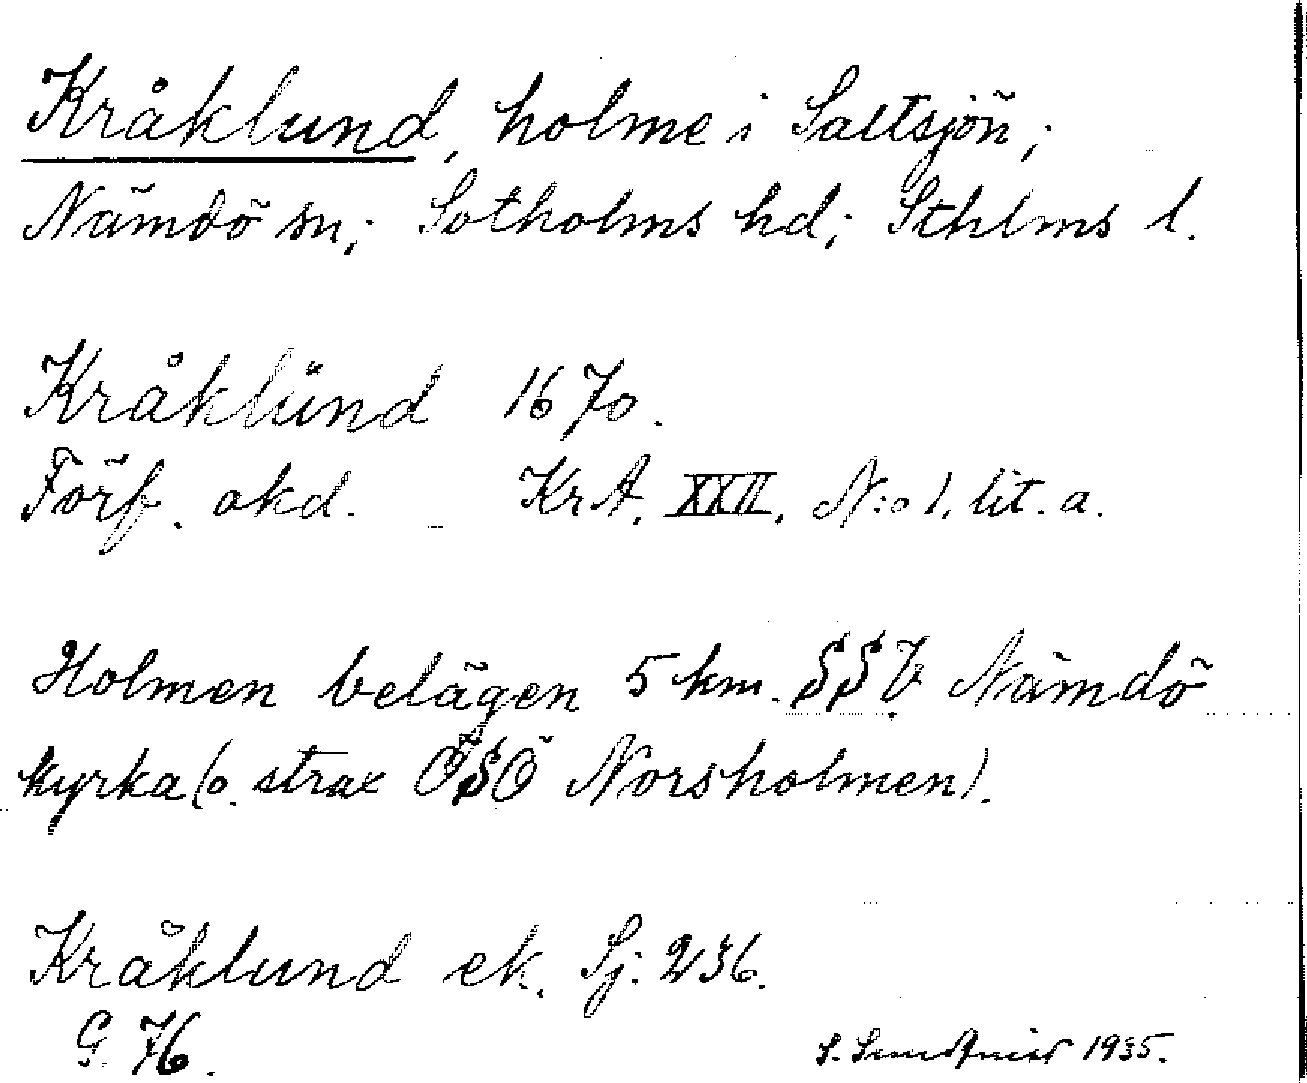 Kråklund, holme i Saltsjön;
Nämdö sn; Sotholms hd; Sthlms l.
Kråklŭnd 1670.
Förf. okd. - KrA. XXII, N:o 1. lit. a.
Holmen belägen 5 km. SSV Nämdö
kyrka (o. strax ÖSÖ Norsholmen).
Kråklund ek. Sj. 236.
G. 76.
S. 1935.